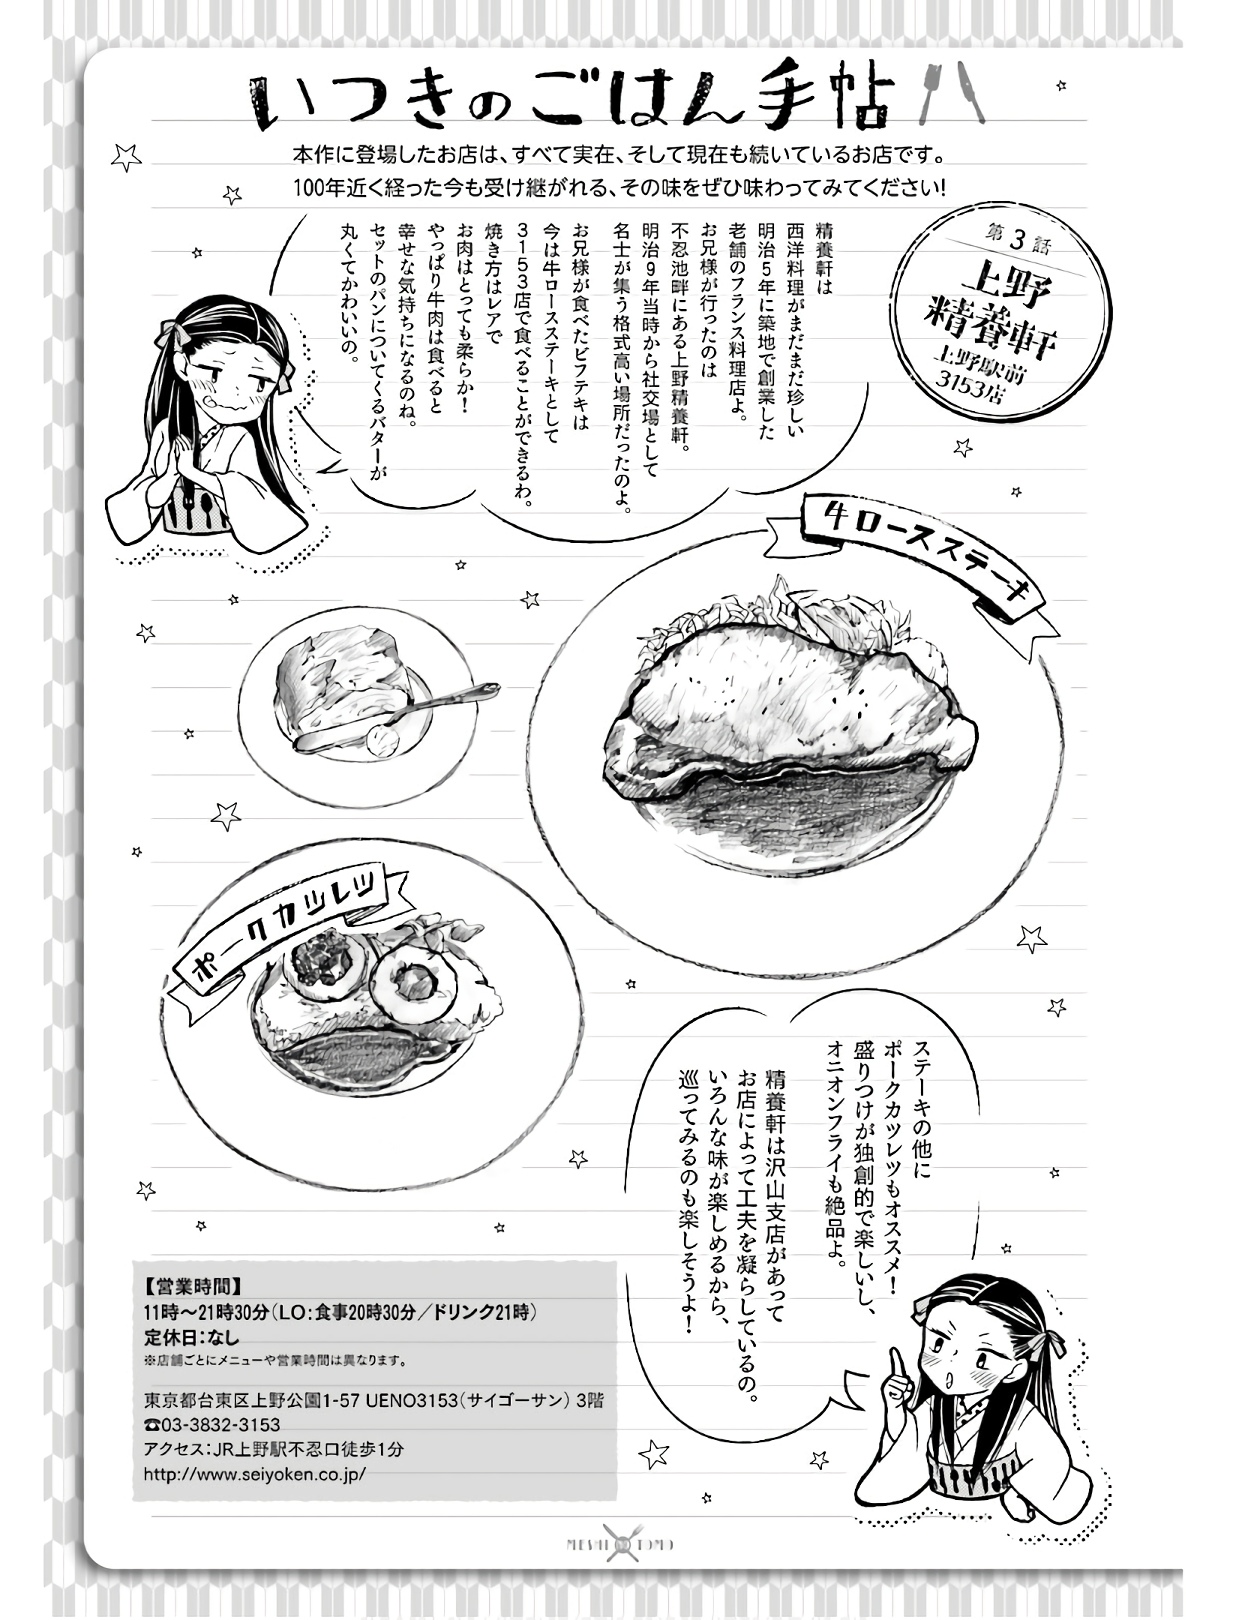 いつきのごはん手帖
本作に登場したお店は、すべて実在、そして現在も続いているお店です。
100年近く経った今も受け継がれる、その味をぜひ味わってみてください!
第3話
上野
精養軒
上野駅前
3153店
精養軒は
西洋料理がまだまだ珍しい
明治5年に築地で創業した
老舗のフランス料理店よ。
お兄様が行ったのは
不忍池畔にある上野精養軒。
明治9年当時から社交場として
名士が集う格式高い場所だったのよ。
お兄様が食べたビフテキは
今は牛ロースステーキとして
3153店で食べることができるわ。
焼き方はレアで
お肉はとっても柔らか!
やっぱり牛肉は食べると
幸せな気持ちになるのね。
セットのパンについてくるバターが
丸くてかわいいの。
牛ロースステーキ
ポークカツレツ
ステーキの他に
ポークカツレツもオススメ!
盛りつけが独創的で楽しいし、
オニオンフライも絶品よ。
精養軒は沢山支店があって
お店によって工夫を凝らしているの。
いろんな味が楽しめるから、
巡ってみるのも楽しそうよ!
【営業時間】
11時〜21時30分(LO:食事20時30分/ドリンク21時)
定休日:なし
※店舗ごとにメニューや営業時間は異なります。
東京都台東区上野公園1-57 UENO3153(サイゴーサン) 3階
☎03-3832-3153
アクセス:JR上野駅不忍口徒歩1分
http://www.seiyoken.co.jp/
MESHI NO TOMO